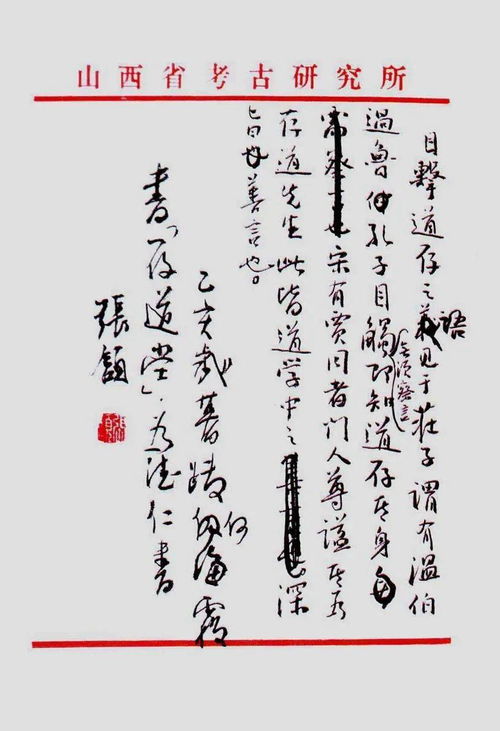 山西省考古研究所
目擊道存之語見于莊子謂有溫伯
過魯 孔子目觸即知道存其身
無須察言
宋有賈同者門人尊諡其為
存道先生此皆道学中之深
旨 善言也。
乙亥歲暮
書「存道堂」為德仁書
張頷